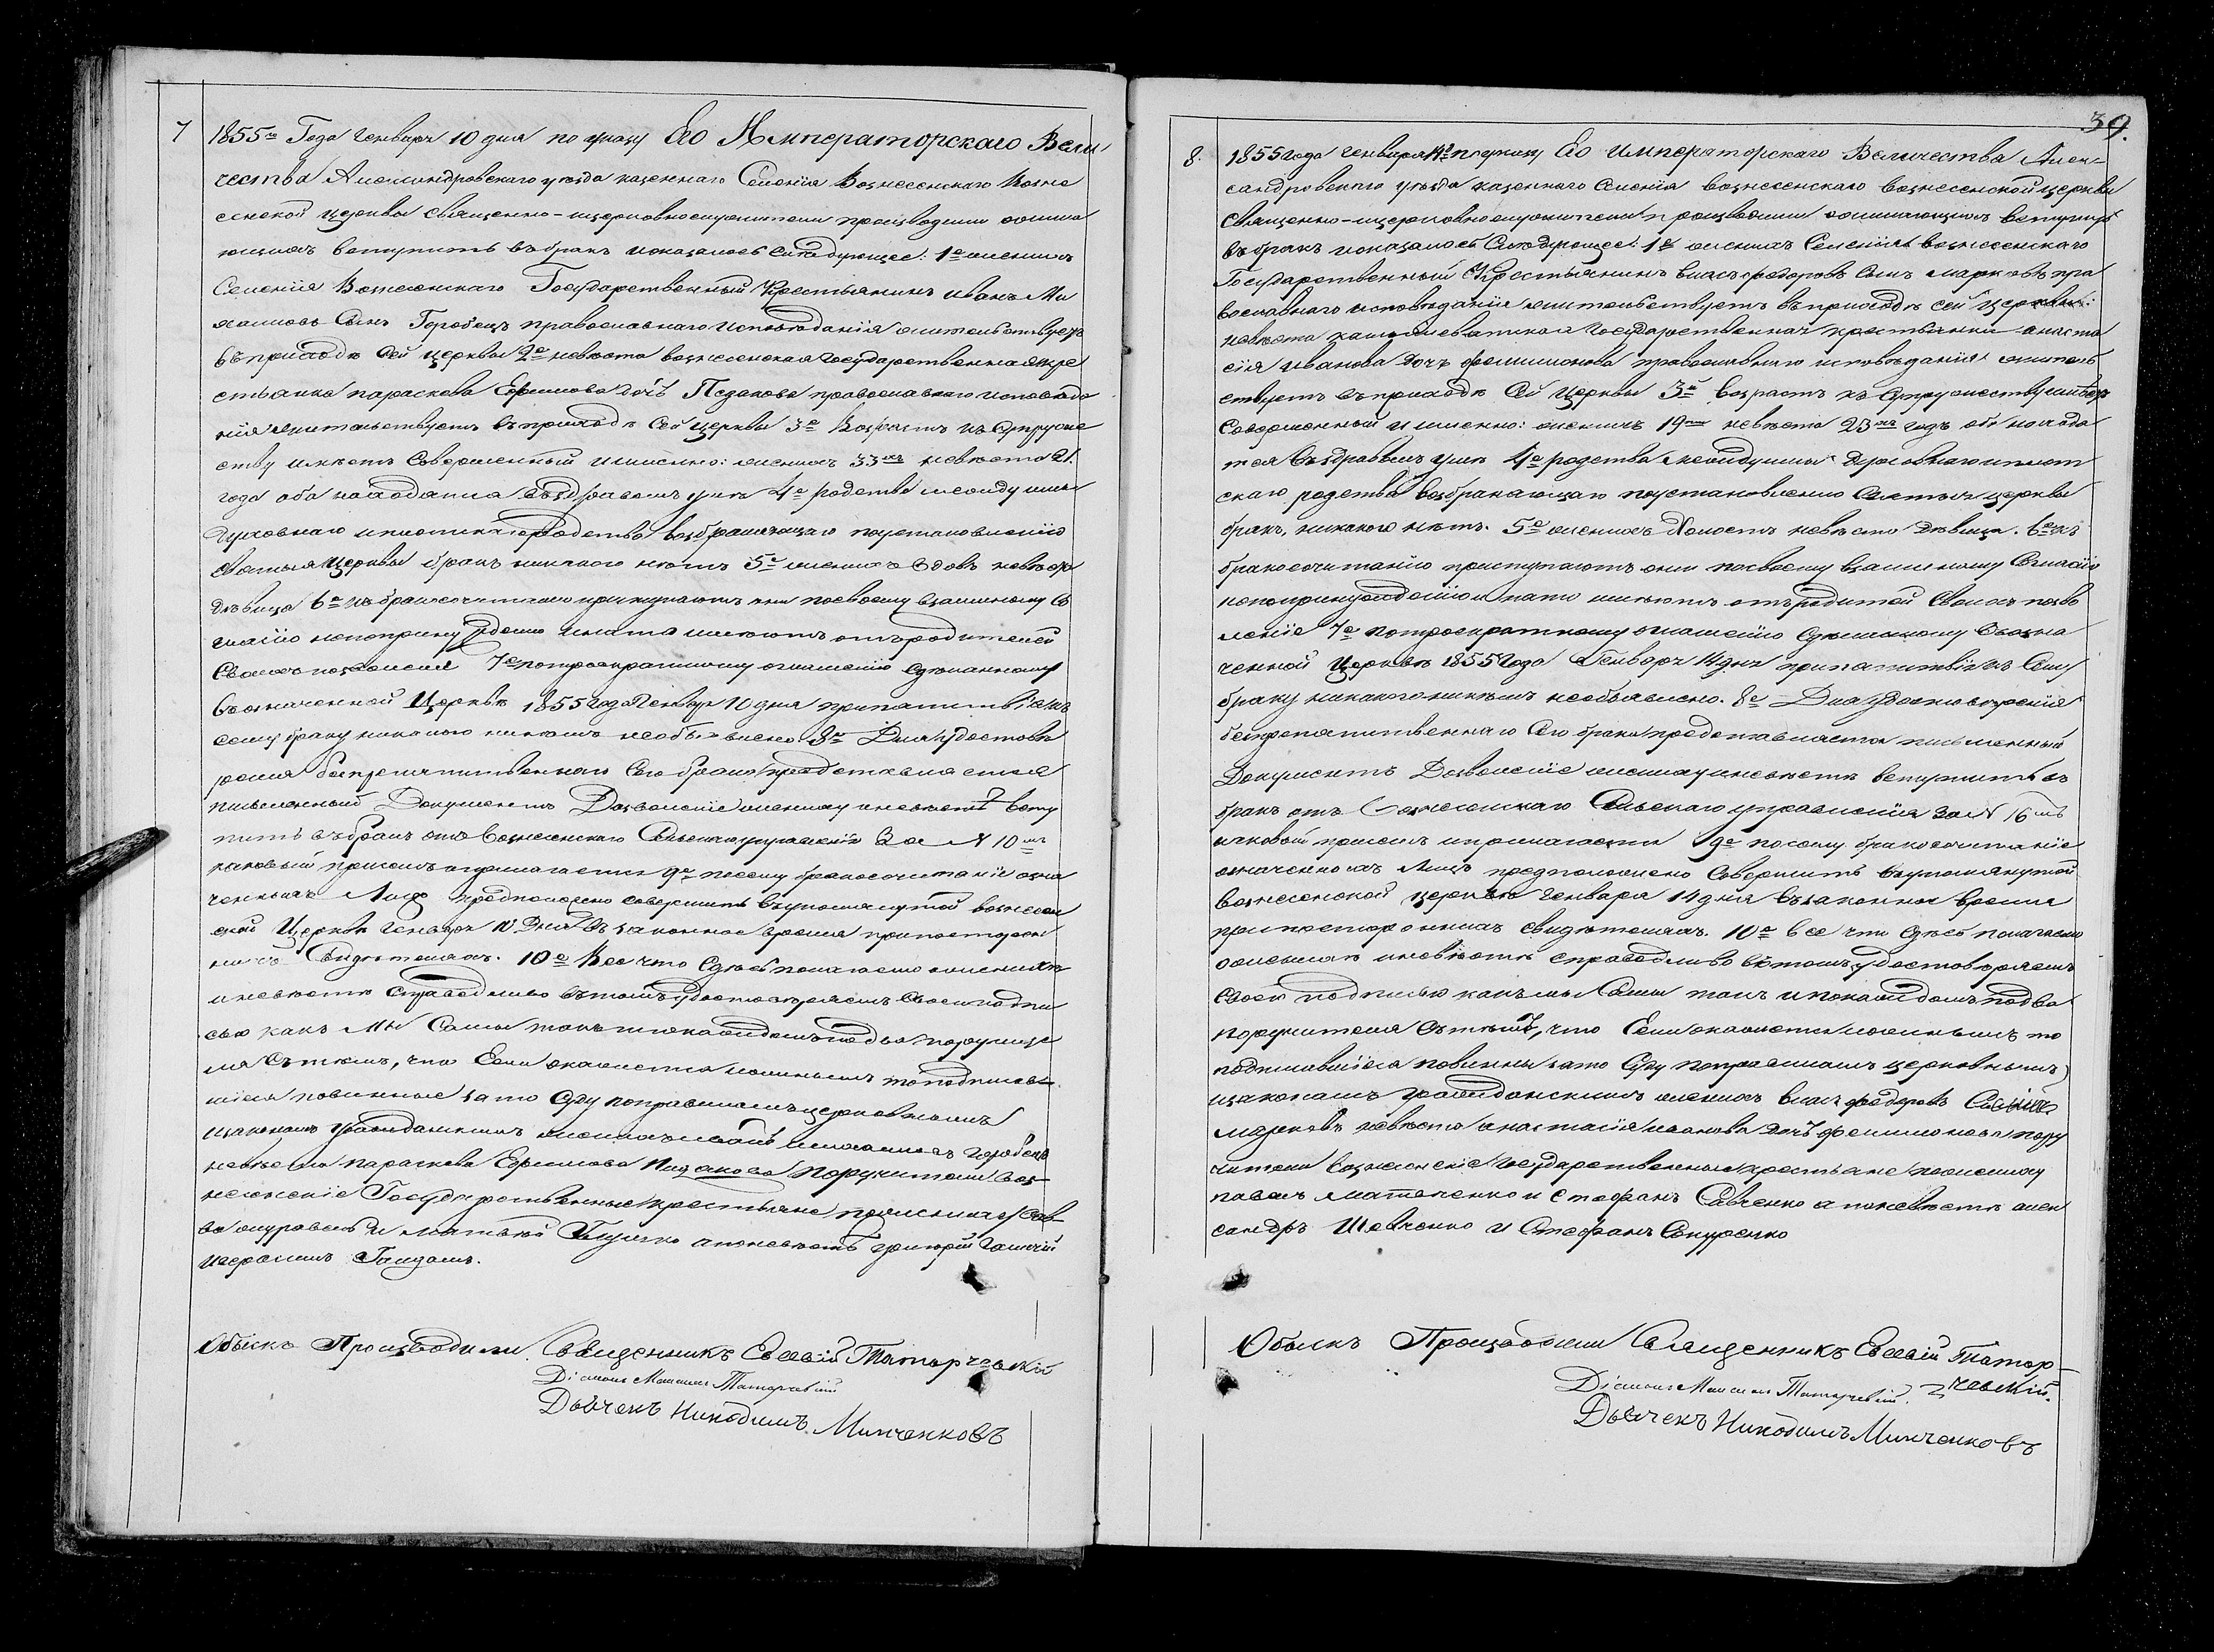 7
1855го Года Генваря 10 дня по указу Его Императорскаго Вели
чества Александровскаго уезда казеннаго Селенія Вознесенскаго Возне
сенской церквы священно-церковнослужители производили
ющихъ вступить въ бракъ и оказалось следующее: 1е женихъ
Селенія Вознесенскаго Государственный Крестьянинъ Иванъ Ми
хаиловъ Сынъ Горобецъ православнаго исповеданія жительствуетъ
въ приходе сей церквы 2е невеста вознесенская государственная кре
стьянка параскева Ефимова дочь православнаго исповеда
нія жительствуетъ въ приходе сей церквы 3е Возрастъ къ супруже
ству имеютъ совершенный и именно: женихъ 33хъ невеста 21.
года оба находятся въ здравомъ уме 4е родства между ими
духовнаго и плотскаго родства возбраняющаго по установленію
святыя церквы бракъ никакого нетъ 5е женихъ вдовъ невеста
девица 6е къ бракосочетанію приступаютъ они по своему взаимному со
гласію не по принужденію и на то имеютъ отъ родителей
своихъ позволеніе 7е по троекратному оглашенію сделанному
въ означенной Церкве 1855 года Генваря 10 дня препятствія къ
сему браку никакого никемъ необъявлено 8е Для удостове
ренія безпрепятственнаго сего брака представляется
письменный Документъ Дозволеніе жениху и невесте всту
пить въ бракъ отъ Вознесенскаго Сельскаго управленія За N 10мъ
каковый присемъ и прилагается 9е посему бракосочетаніе озна
ченныхъ Лицъ предположено совершить въ упомянутой вознесен
ской Церкве Генваря 10 Дня въ законное время при посторон
нихъ Свидетеляхъ. 10е Все что здесь показано о женихе
и невесте справедливо въ томъ удостоверяемъ своею подпи
сью какъ мы Сами такъ и по каждомъ по два поручите
ля съ темъ, что Если окажется ложнымъ то подписав
шіеся повинные за то суду по правиламъ церковнымъ
и законамъ гражданскимъ женихъ Иванъ Михаиловъ Горобецъ
невеста параскева Ефимова Поручители Воз-
несенскіе Государственные крестьяне по женихе
и матвей а по невесте григорій

Обыскъ Производили. Священникъ Татарчевскій
Діаконъ Татарчевскій
Дьячекъ Никодимъ Минченковъ

39.
8.
1855 года генваря 14 по указу Его Императорскаго Величества Алек-
сандровскаго уезда казеннаго Селенія вознесенскаго вознесенской церквы
священно-церковнослужители производили желающимъ вступить
въ бракъ и оказалось Следующее: 1е женихъ Селенія вознесенскаго
Государственный Крестьянинъ власъ федоровъ Сынъ марковъ пра
вославнаго исповеданія жительствуетъ въ приходе сей церквы:
невеста государственная крестьянка анаста
сія Иванова дочь филимонова православнаго исповеданія житель
ствуетъ въ приходе сей Церквы 3е Возрастъ къ супружеству имеютъ
совершенный и именно: женихъ 19ть невеста 23хъ годъ оба находя
тся въ здравомъ уме 4е родства между ими духовнаго и плот
скаго родства возбраняющаго по установленію Святыя церквы
бракъ, никакого нетъ. 5е женихъ Холостъ невеста девица. 6е къ
бракосочетанію приступаютъ они по своему взаимному согласію
не по принужденію и на то имеютъ отъ родителей своихъ позво
леніе 7е по троекратному оглашенію сделанному въ озна
ченной Церкве 1855 года Генваря 14 дня препятствія къ сему
браку никакого никемъ необъявлено. 8е Для удостоверенія
безпрепятственнаго сего брака представляется письменный
Документъ Дозволеніе жениху и невесте вступить въ
бракъ отъ Вознесенскаго Сельскаго управленія за N 16мъ
каковой присемъ и прилагается 9е по сему бракосочетаніе
означенныхъ Лицъ предположено Совершить въ упомянутой
вознесенской церкве генваря 14 дня въ законное время
при постороннихъ свидетеляхъ. 10е все что здесь показано
о женихе и невесте справедливо въ томъ удостоверяемъ
своею подписью какъ мы Сами такъ и по каждомъ по два
поручителя съ темъ, что Если окажется ложнымъ то
подписавшіеся повинны за то суду по правиламъ церковнымъ
и законамъ гражданскимъ женихъ власъ федоровъ Сынъ
марковъ невеста анастасія иванова дочь филимонова пору
чители вознесенскіе государственные крестьяне по жениху
павелъ и стефанъ Савченко а по невесте алек
сандръ Шевченко и Стефанъ

Обыскъ Производили Священникъ Татар-
чевскій.
Діаконъ Татарчевскій.
Дьячекъ Никодимъ Минченковъ